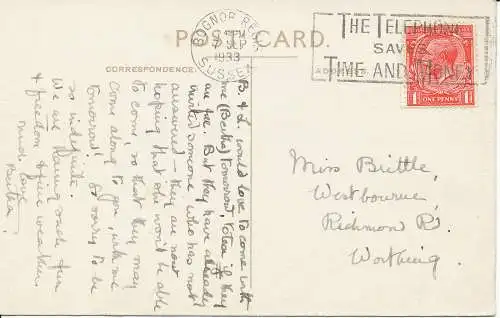 POST CARD.
CORRESPONDENCE
BOGNOR REGIS
SUSSEX
7 SEP
1933
THE TELEPHONE
SAVES
TIME AND MONEY
ONE PENNY
B & L would love to come with
me (Bertha) tomorrow, to tea if they
are free. But they have already
invited someone, who has not
answered – they are now
hoping that she won't be able
to come, so that they may
come along to you, with me
tomorrow! So sorry to be
so indefinite.
We are having such fun
& freedom & fine weather
much love
Bertha.
Miss Brittle,
Westbourne,
Richmond Rd.
Worthing.